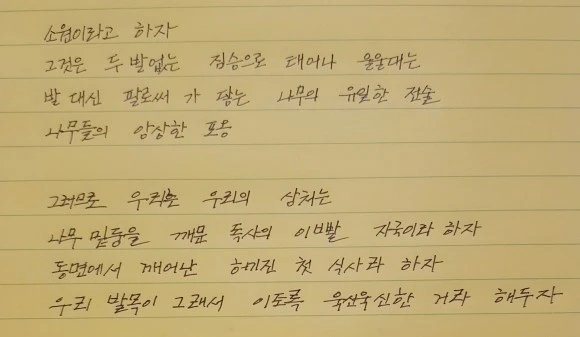 소원이라고 하자
그것은 두 발 없는 짐승으로 태어나 울울대는
발 대신 팔로써 가 닿는 나무의 유일한 전술
나무들의 앙상한 포옹
그러므로 우리는 우리의 상처는
나무 밑동을 깨문 독사의 이빨 자국이라 하자
동면에서 깨어난 허기진 첫 식사라 하자
우리 발목이 그래서 이토록 욱신욱신한 거라 해두자